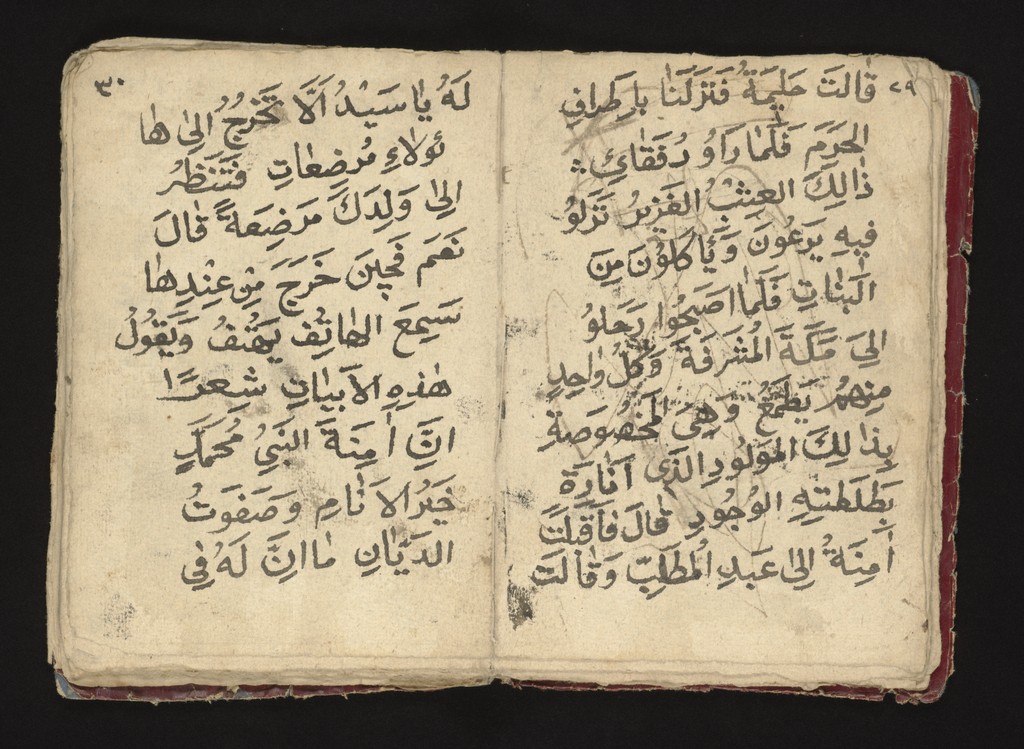 ٢٩
قٰالَتَ حَلِيْمَةُ فَتَزَلْنٰا بِاَطَرافِ
الحَرَمِ فَلَمٰارَاَوُ رُفَقٰائِي
ذٰالِكَ العِيشْ الغَزِيرُ تَزَلوُ
فيهِ يَرعُونَ وَيٰأكلوُنَ مِنَ
النَباتِ فَلَمٰا اَصَبحُوا رَحَلوُ
الىَ مَكَةَ المُشَرَفَةَ وَكُلُ وٰاحِدٍ
مِنهُم يَطَمَعُ وَهِىَ المَخصُوصَةِ
بِذٰالِكَ المَولُودِ الذَى اَنٰارَة
بَطَلَعَتِهِ الوُجُودِ قٰالَ فٰاَقبَلَتَ
اٰمِنَةُ اِلىٰ عَبدِ المُطَلِبّ وَقٰالَتَ
٣٠
لَهُ يٰا سَيْدُ اَلَا تَخْرُجُ اِلىٰ هٰا
ئولاءِ مُرضِعٰاتِ فَتَنَظُر
اِلىٰ وَلِدَكَ مَرَضِعَةً قٰالَ
نَعَم فَحِينَ خَرَجَ مِن عِنْدِهٰا
سَمِعَ الهٰاتِف يَهتِفُ وَيَقوُلُ
هٰذِهِ الاَبيٰاتِ شِعرًا
اِنَّ اٰمِنَةَ النَبيُ مُحَمَدٍ
خَيرُ الاَنٰامِ وَصَفوَتُ
الدَيٰانِ مٰا اِنَّ لَهُ فِي